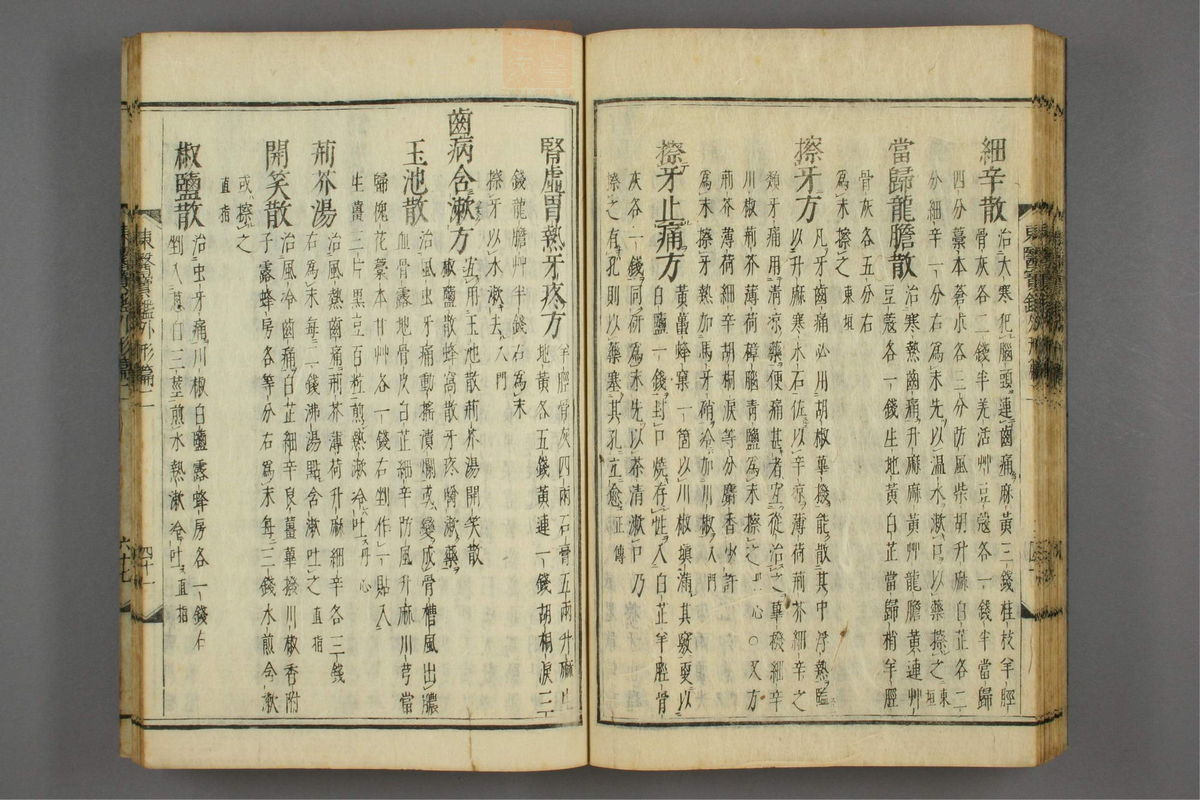 細辛散 治大寒犯腦頭連齒痛麻黃三錢桂枝羊脛
骨灰各二錢半羌活艸豆蔻各一錢半當歸
四分藁本蒼朮各三分防風柴胡升麻白芷各二
分細辛一分右爲末先以温水漱口以藥擦之東垣
當歸龍膽散 治寒熱齒痛升麻麻黃艸龍膽黃連艸
豆蔻各一錢生地黃白芷當歸梢羊脛
骨灰各五分右
爲末擦之東垣
擦牙方 凡牙齒痛必用胡椒蓽撥能散其中浮熱監
以升麻寒水石佐以辛凉薄荷荊芥細辛之
類牙痛用清凉藥便痛甚者宜從治之蓽撥細辛
川椒荊芥薄荷樟腦青鹽爲末擦之丹心○又方
荊芥薄荷細辛胡桐淚等分麝香少許
爲末擦牙熱加馬牙硝冷加川椒入門
擦牙止痛方 黃蠟蜂窠一箇以川椒塡滿其竅更以
白鹽一錢封口燒存性入白芷羊脛骨
灰各一錢同研爲末先以茶清漱口乃
擦之有孔則以藥塞其孔立愈正傳
腎虛胃熱牙疼方 羊脛骨灰四兩石膏五兩升麻生
地黃各五錢黃連一錢胡桐淚三
錢龍膽艸半錢右爲末
擦牙以水漱去入門
齒病含漱方 宜用玉池散荊芥湯開笑散
椒鹽散蜂窩散牙疼噙漱藥
玉池散 治風虫牙痛動搖潰爛或變成骨槽風出膿
血骨露地骨皮白芷細辛防風升麻川芎當
歸槐花藁本甘艸各一錢右剉作一貼入
生薑三片黑豆百粒煎熱漱冷吐丹心
荊芥湯 治風熱齒痛荊芥薄荷升麻細辛各三錢
右爲末每二錢沸湯點含漱吐之直指
開笑散 治風冷齒痛白芷細辛良薑蓽撥川椒香附
子露蜂房各等分右爲末每三錢水煎含漱
或擦之
直指
椒鹽散 治虫牙痛川椒白鹽露蜂房各一錢右
剉入葱白三莖煎水熱漱冷吐直指
東醫寶鑑外形篇二